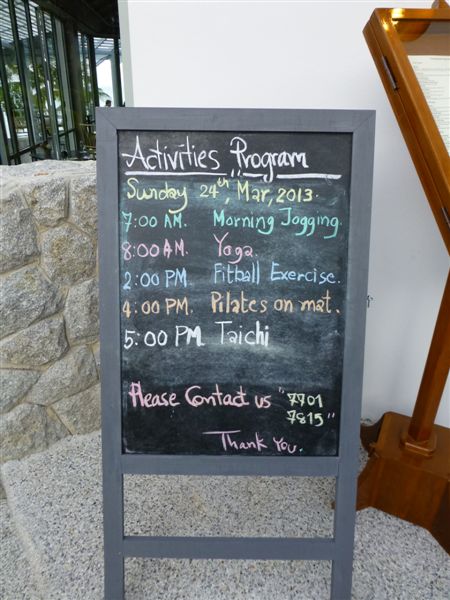 Activities Program
Sunday 24th, Mar, 2013.
7:00 AM. Morning Jogging.
8:00 AM. Yoga.
2:00 PM. Fitball Exercise.
4:00 PM. Pilates on mat.
5:00 PM. Taichi
Please Contact us "7701
7815"
Thank You.